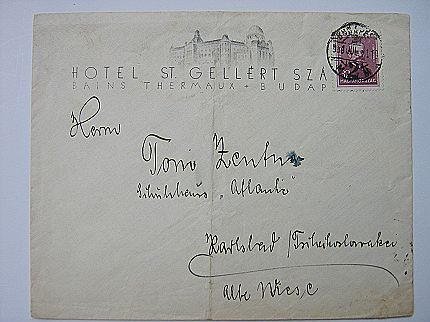 HOTEL ST. GELLÉRT SZÁ
BAINS THERMAUX + BUDAP
MAGYARORSZÁG
Herrn
Toni Zentn
Schuhhaus „Atlantic"
Karlsbad / Tschechoslovakei
Alte Wiese